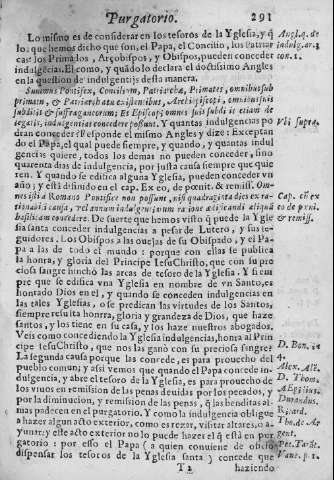 Purgatorio. 291
Lo mismo es de considerar en los tesoros de la Yglesia, y q̃
lo que hemos dicho que son, el Papa, el Concilio, los Patriar
cas los Primados, Arçobispos, y Obispos, pueden conceder
indulgẽcias. El como, y quãdo lo declara el doctissimo Angles
en la question de indulgentijs desta manera.
Summus Pontifex, Concilium, Patriarcha, Primates, omnibus sub
Yglesia, y quantas indulgencias po
dran conceder? Responde el mismo Angles y dize: Exceptan
do el Papa, el qual puede siempre, y quando, y quantas indul
gencias quiere, todos los demas no pueden conceder, sino
quarenta dias de indulgencia, por justa causa siempre que quie
ren. Y quando se edifica alguna Yglesia, pueden conceder vn
año; y està difinido en el cap. Ex eo, de pœnit. & remiss.
basilicam concedere. De suerte que hemos visto q̃ puede la Ygle
sia santa conceder indulgencias a pesar de Lutero, y sus se-
guidores. Los Obispos a las ouejas de su Obispado, y el Pa-
pa a las de todo el mundo: porque con ellas se publica
la honra, y gloria del Principe IesuChristo, que con su pre
ciosa sangre hinchò las arcas de tesoro de la Yglesia. Y siem
pre que se edifica vna Yglesia en nombre de vn Santo, es
honrado Dios en el, y quando se conceden indulgencias en
las tales Yglesias, o se predican las virtudes de los Santos,
siempre resulta honrra, gloria y grandeza de Dios, que haze
santos, y los tiene en su casa, y los haze nuestros abogados.
Veis como concediendo la Yglesia indulgencias, honra al Prin
cipe IesuChristo, que nos las ganò con su preciosa sangre?
La segunda causa porque las concede, es para prouecho del
pueblo comun; y assi vemos que quando el Papa concede in-
dulgencia, y abre el tesoro de la Yglesia, es para prouecho de
los viuos en remission de las penas deuidas por los pecados, y
por la diminucion, y remission de las penas, q̃ las benditas al-
mas padecen en el purgatorio. Y como la indulgencia obligue
a hazer algun acto exterior, como es rezar, visitar altares, o a-
yunar; y este acto exterior no lo puede hazer el q̃ està en pur
gatorio: por esso el Papa (a quien conuiene de oficio
dispensar los tesoros de la Yglesia santa) concede que
T 2 haziendo
Angl. q. de
indulg. ar. 3
con. 1.
Vbi supra,
Cap. cũ ex
eo de pœni.
& remiss.
D. Bon. in
4.
Alex. Alẽ.
D. Thom.
Durandus.
Ricard.
Tho. de Ar
gent.